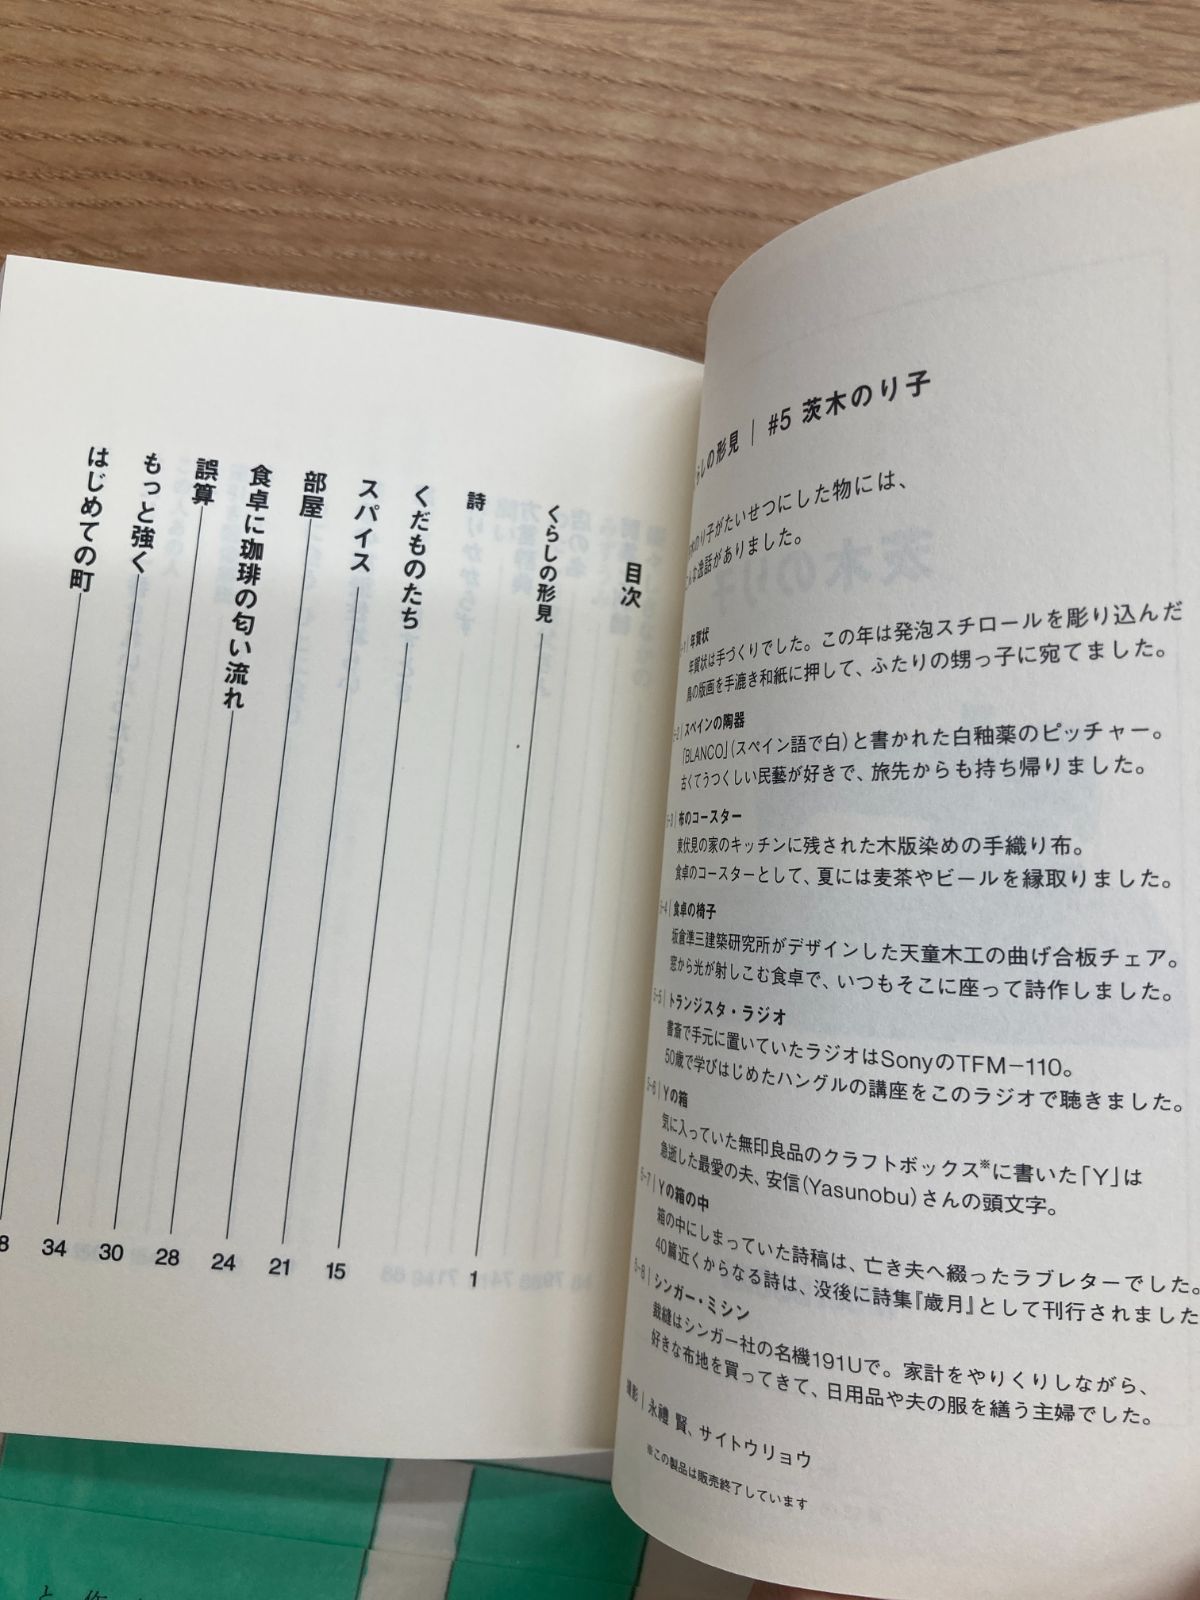 らしの形見｜#5 茨木のり子
のり子がたいせつにした物には、
な逸話がありました。
年賀状
年賀状は手づくりでした。この年は発泡スチロールを彫り込んだ
鳥の版画を手漉き和紙に押して、ふたりの甥っ子に宛てました。
スペインの陶器
「BLANCO」（スペイン語で白）と書かれた白釉薬のピッチャー。
古くてうつくしい民藝が好きで、旅先からも持ち帰りました。
布のコースター
東伏見の家のキッチンに残された木版染めの手織り布。
食卓のコースターとして、夏には麦茶やビールを縁取りました。
5-4｜食卓の椅子
坂倉準三建築研究所がデザインした天童木工の曲げ合板チェア。
窓から光が射しこむ食卓で、いつもそこに座って詩作しました。
5-5｜トランジスタ・ラジオ
書斎で手元に置いていたラジオはSonyのTFM-110。
50歳で学びはじめたハングルの講座をこのラジオで聴きました。
5-6｜Yの箱
気に入っていた無印良品のクラフトボックス※に書いた「Y」は
急逝した最愛の夫、安信（Yasunobu）さんの頭文字。
5-7｜Yの箱の中
箱の中にしまっていた詩稿は、亡き夫へ綴ったラブレターでした。
40篇近くからなる詩は、没後に詩集『歳月』として刊行されました
5-8｜シンガー・ミシン
裁縫はシンガー社の名機191Uで。家計をやりくりしながら、
好きな布地を買ってきて、日用品や夫の服を繕う主婦でした。
撮影｜永禮 賢、サイトウリョウ
※この製品は販売終了しています
目次
くらしの形見 1
詩
くだものたち 15
スパイス 21
部屋 24
食卓に珈琲の匂い流れ 28
誤算 30
もっと強く 34
はじめての町 8
と 作